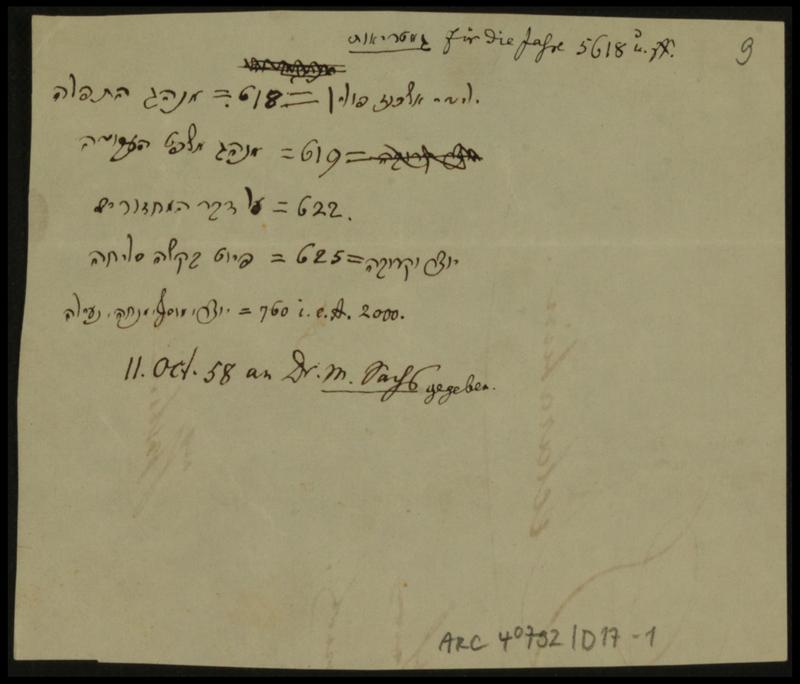 גמטריאות für die Jahre 5618 u. ff.
9
אשכנז פולין = 618 = מנהג התפלה
= 619 = מנהג
622 = על דבר המחזורים.
יוצר וקרובה = 625 = פיוט בקשה סליחה
יוצר, מוסף, מנחה, נעילה = 760 i. e. A. 2000.
11. Oct. 58 an Dr. M. Sachs gegeben.
ARC 4°792/D17-1